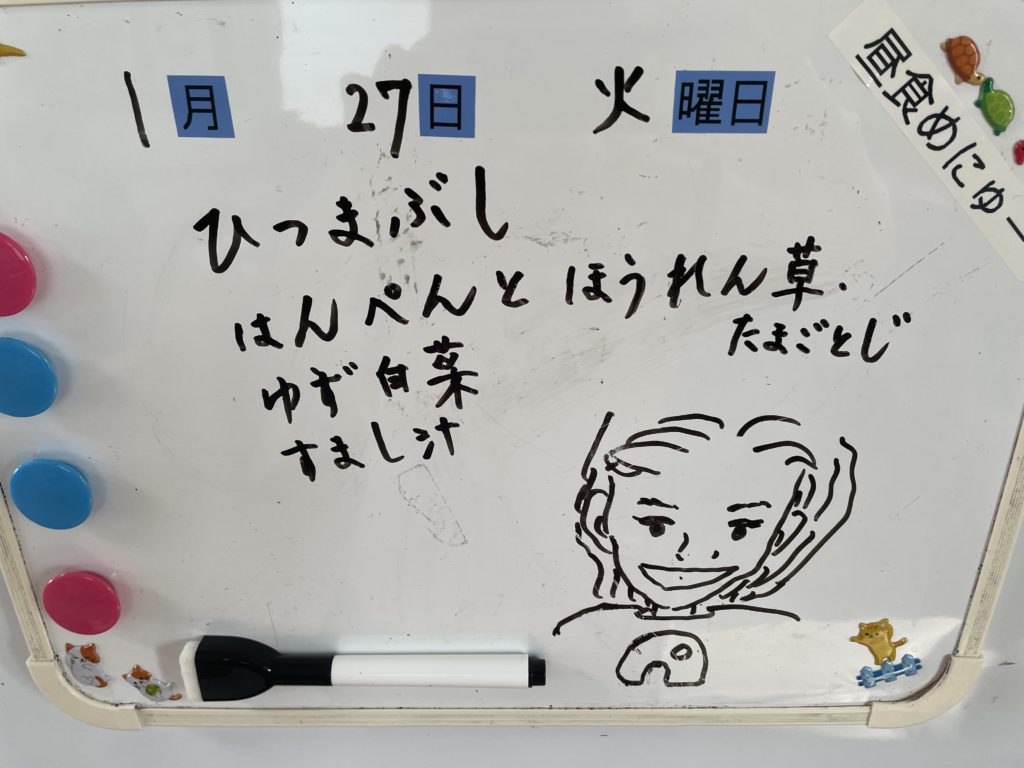 1月 27日 火曜日
昼食めにゅー
ひつまぶし
はんぺんとほうれん草.
たまごとじ
ゆず白菜
すまし汁